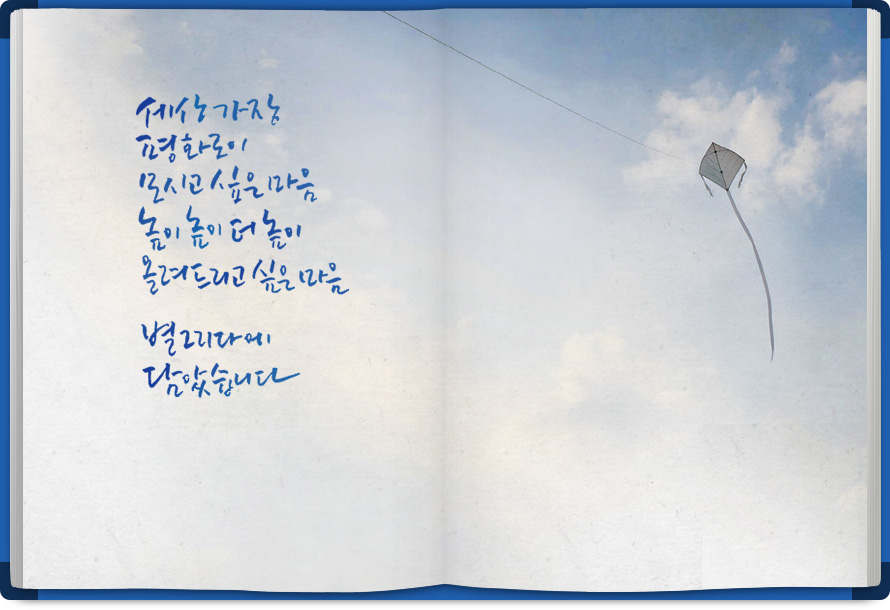 세상 가장
평화로이
모시고 싶은 마음
높이 높이 더 높이
올려드리고 싶은 마음
별그리다에
담았습니다